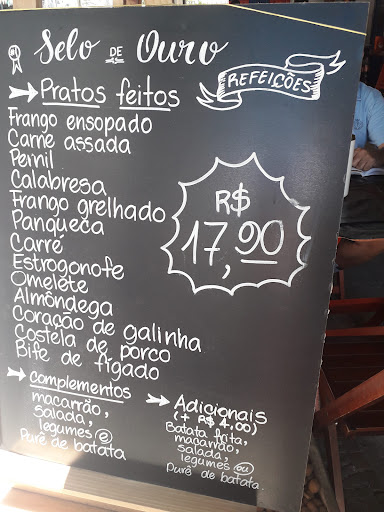 #1 Selo DE Ouro
REFEIÇÕES
Pratos feitos
Frango ensopado
Carne assada
Pernil
Calabresa
Frango grelhado
Panqueca
Carré
Estrogonofe
Omelete
Almôndega
Coração de galinha
Costela de porco
Bife de fígado
R$
17,90
Complementos
macarrão,
salada,
legumes e
Purê de batata
Adicionais
(+ R$ 4,00)
Batata frita,
macarrão,
salada,
legumes ou
Purê de batata.